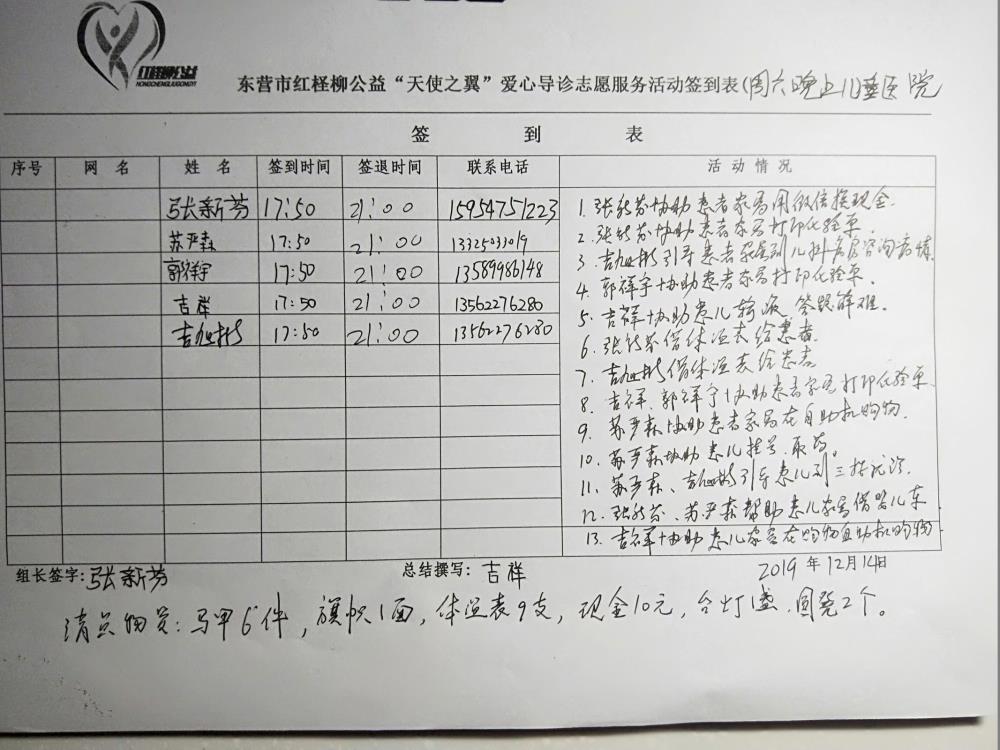 红柽柳公益
HONGCHENGLIUGONGYI
东营市红柽柳公益“天使之翼”爱心导诊志愿服务活动签到表(周六晚上儿童医院
签 到 表
序号 网名 姓名 签到时间 签退时间 联系电话 活动情况
张新芬 17:50 21:00 15954751223
苏严森 17:50 21:00 13325033019
郭祥宇 17:50 21:00 13589986148
吉祥 17:50 21:00 13562276280
吉旭彬 17:50 21:00 13562276280
1. 张新芬协助患者家属用微信换现金.
2. 张新芬协助患者家属打印化验单.
3. 吉旭彬引导患者家属到儿科病房咨询病情.
4. 郭祥宇协助患者家属打印化验单.
5. 吉祥协助患儿输液 答疑解难.
6. 张新芬借体温表给患者.
7. 吉旭彬借体温表给患者
8. 吉祥、郭祥宇协助患者家属打印化验单.
9. 苏严森协助患者家属在自助机购物.
10. 苏严森协助患儿挂号、取药。
11. 苏严森、吉旭彬引导患儿到三楼化验.
12. 张新芬、苏严森帮助患儿家属借婴儿车
13. 吉祥协助患儿家属在购物自助机购物
组长签字:张新芬 总结撰写:吉祥 2019年12月14日
清点物资:马甲6件,旗帜1面,体温表9支,现金10元,台灯1盏.圆凳2个。